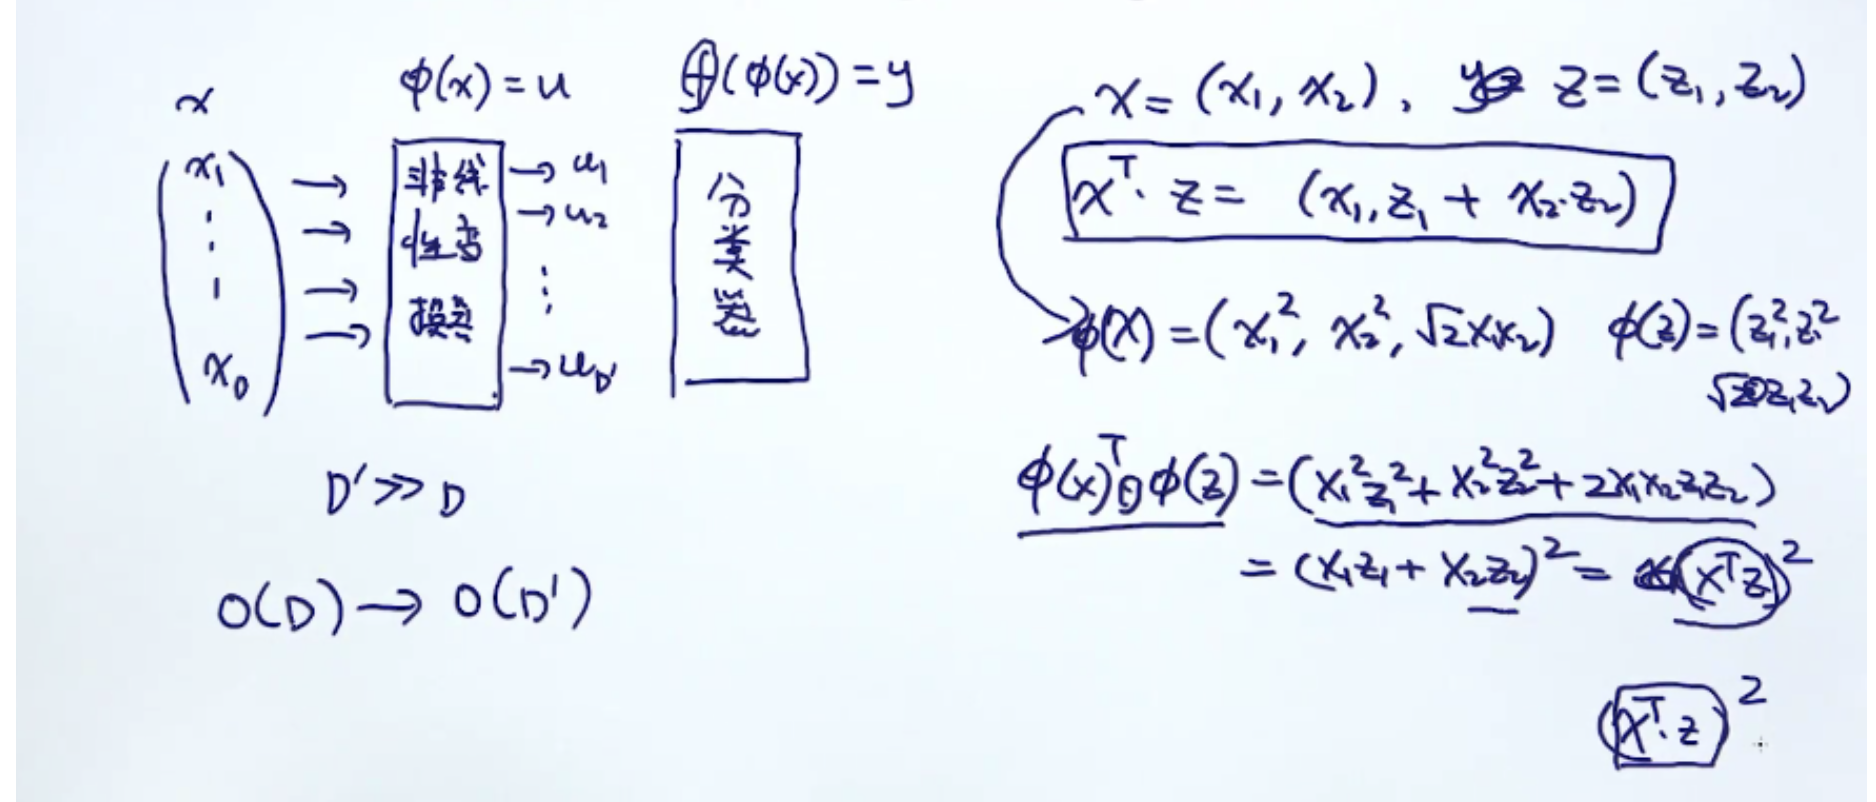 x
φ(x) = u
f(φ(x)) = y
x₁
⋮
x_D
非线
性变
换
→ u₁
→ u₂
⋮
→ u_D'
分
类
器
D' >> D
O(D) → O(D')
x = (x₁, x₂), z = (z₁, z₂)
xᵀ· z = (x₁,z₁ + x₂·z₂)
φ(x) = (x₁², x₂², √2x₁x₂) φ(z) = (z₁², z₂²
z₁z₂)
φ(x)ᵀ φ(z) = (x₁²z₁² + x₂²z₂² + 2x₁x₂z₁z₂)
= (x₁z₁ + x₂z₂)² = (xᵀz)²
(xᵀ·z)²